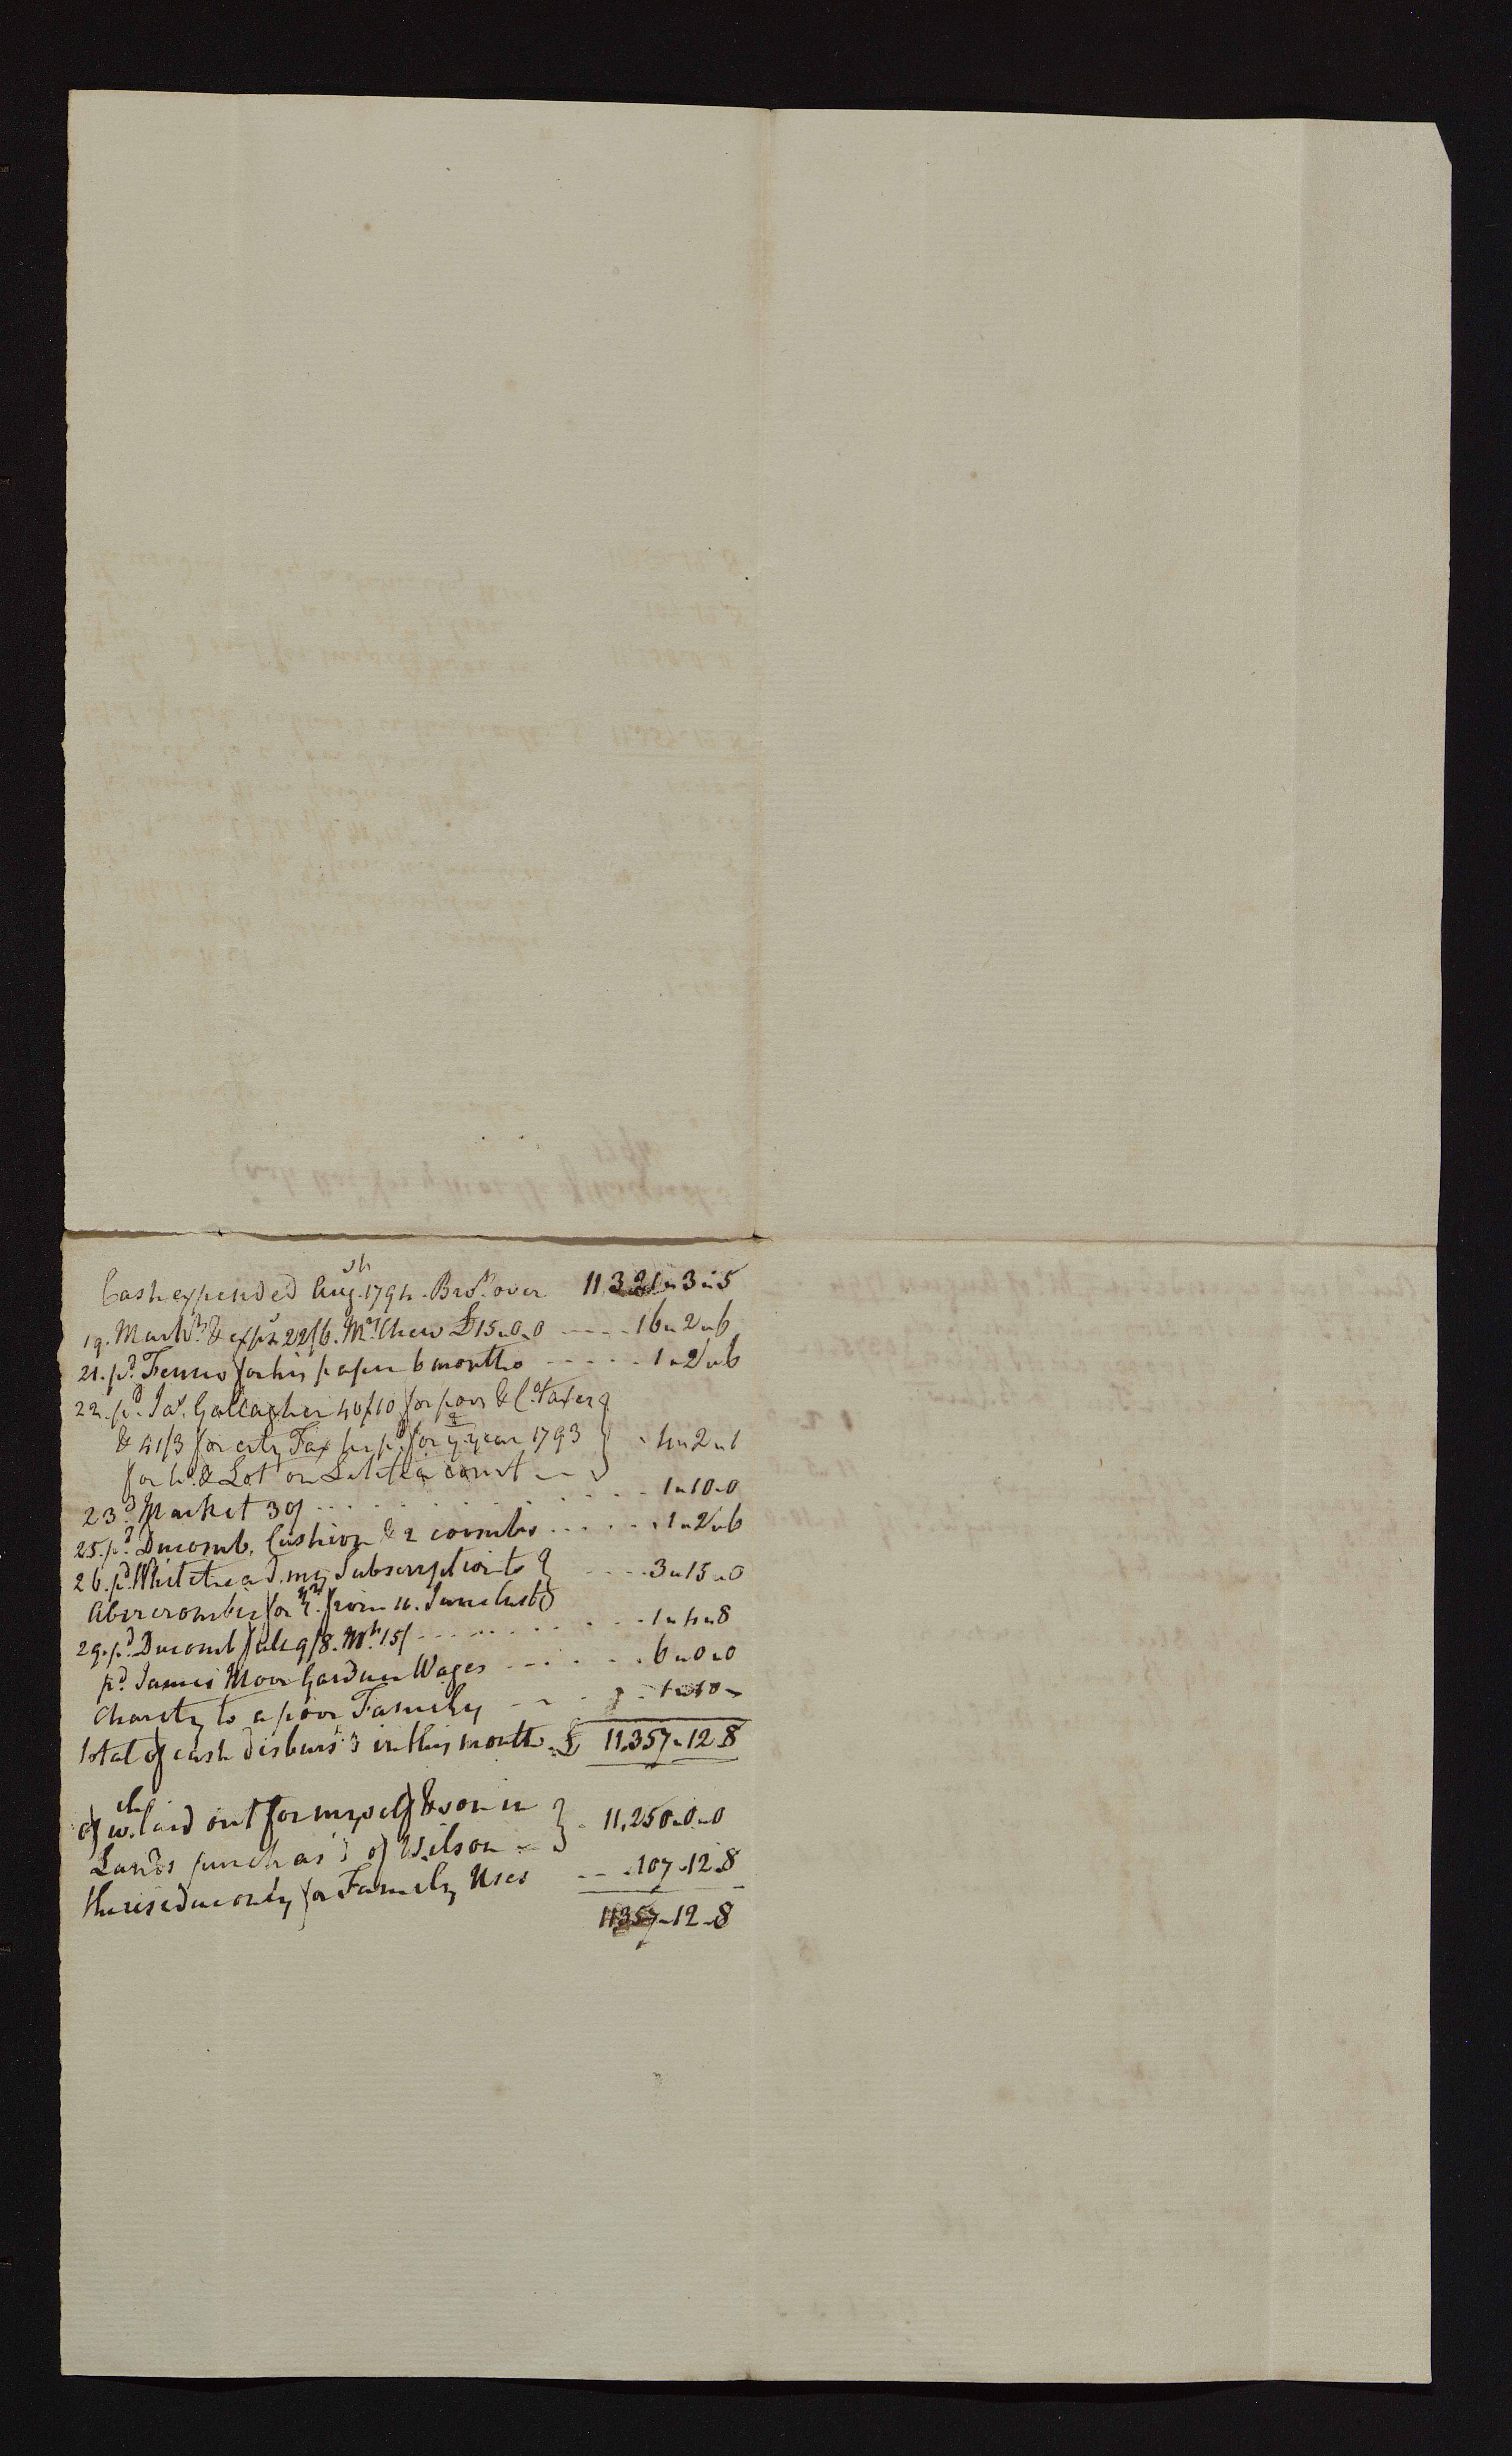 Cash expended Aug.st 1794. Bro.t over 11321"3"5
19. Mark.t & exp.s 22/6. M.rs Chew £15.0.0 ----- 16"2"6
21. p.d Fenno for his paper 6 months ----- 1"2"6
22. p.d Ja.s Gallagher 40/10 for poor & C.o Taxes
& 41/3 for city Tax for y.e year 1793 4"2"1
for h.o & Lot on Letitia court
23.d Market 30/ ......... 1"10"0
25. p.d Ducomb. Cushion & 2 combs ...... 1"2"6
26. p.d Whitehead my Subscription to
Abercrombie for from 11. June last ---- 3"15"0
29. p.d Ducomb 9/8. M.kt 15/ ......... 1"4"8
p.d James Moor Gardner Wages ..... 6"0"0
Charity to a poor Family --- 1"10"
Total of cash disburs'd in this month. £ 11,357"12"8
of w.ch laid out for myself & son in
Lands purchas'd of Wilson -- 11,250"0"0
the residue only for Family Uses --- 107"12"8
11357"12"8